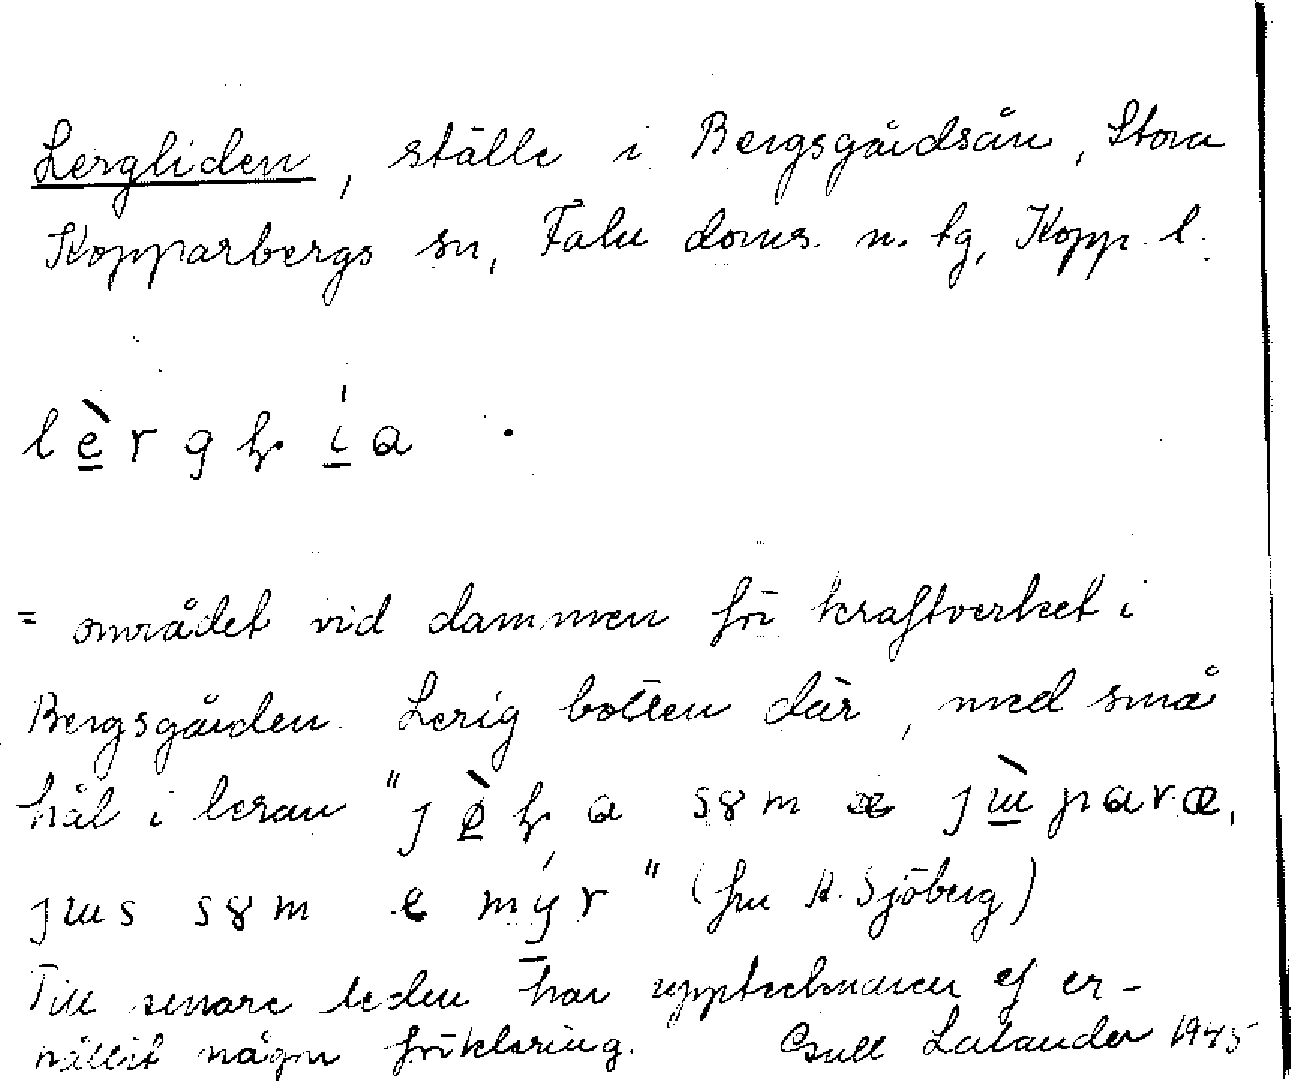 Lergliden, ställe i Bergsgårdsån, Stora
Kopparbergs sn, Falu doms. n. tg, Kopp. l.
lèrgḷía
= området vid dammen för kraftverket i
Bergsgården. Lerig botten där, med små
hål i leran "
som
" (fru A. Sjöberg)
Till senare leden har upptecknaren ej er-
hållit någon förklaring. Lalander 1945